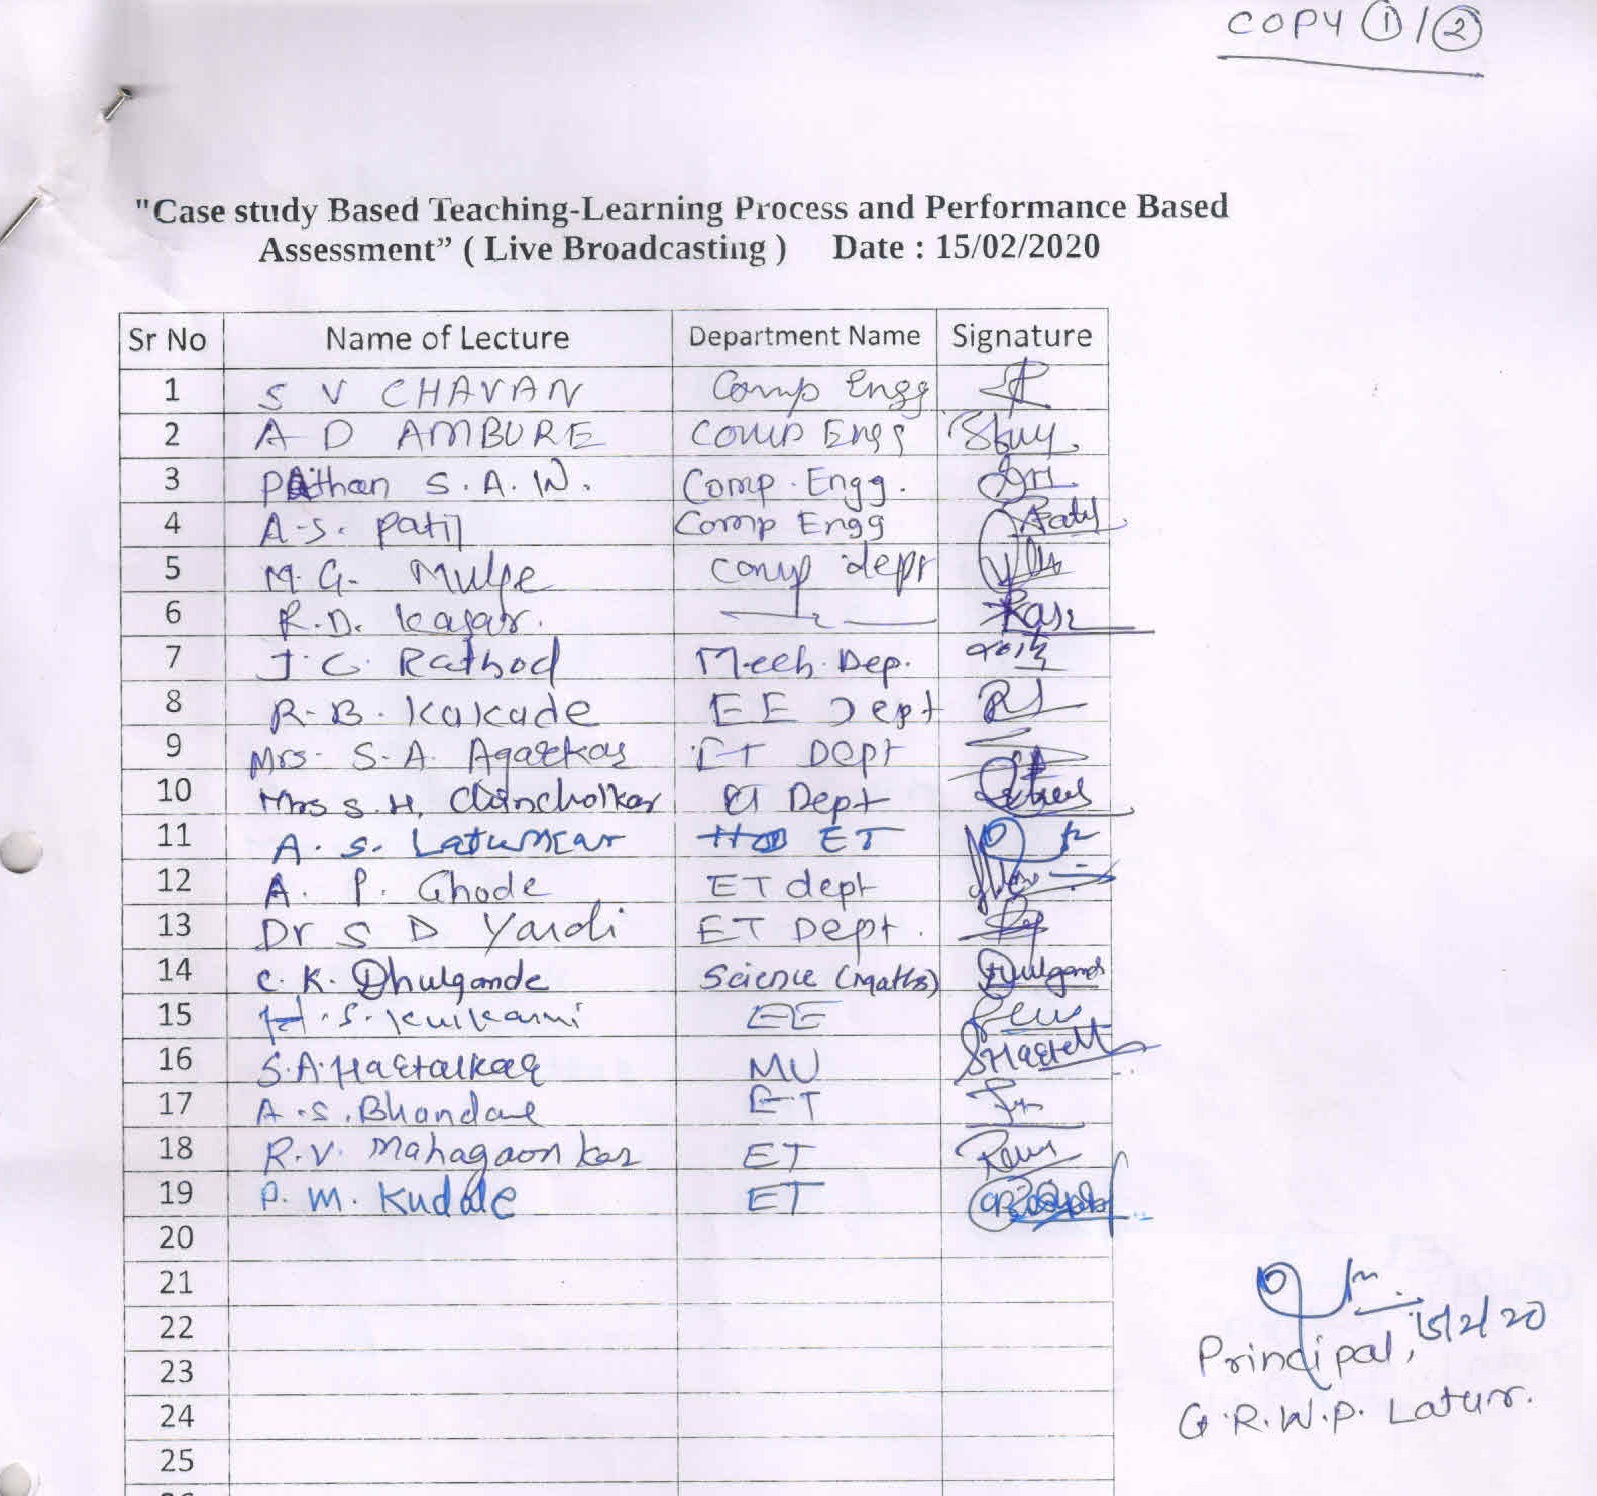 COPY ① / ②
"Case study Based Teaching-Learning Process and Performance Based
Assessment” ( Live Broadcasting ) Date : 15/02/2020
Sr No Name of Lecture Department Name Signature
1 S V CHAVAN Comp Engg
2 A D AMBURE Comp Engg
3 Pathan S.A.W. Comp. Engg.
4 A.S. Patil Comp Engg Patil
5 M.G. Mulge comp dept
6 R.D. Kasar.
7 J.C. Rathod Mech. Dep.
8 R.B. Kakade EE Dept
9 Mrs. S.A. Agarkar ET Dept
10 Mrs S.H. Chincholkar ET Dept
11 A.S. Laturkar ET
12 A. P. Ghode ET dept
13 Dr S D Yardi ET Dept.
14 C.K. Dhulgande Science (Maths) Dhulgande
15 H.S. Kulkarni EE
16 S.A. Hartalkar MU
17 A.S. Bhandare ET
18 R.V. Mahagaonkar ET
19 P.M. Kudale ET
20
21
22
23
24
25
15/2/20
Principal,
G.R.W.P. Latur.